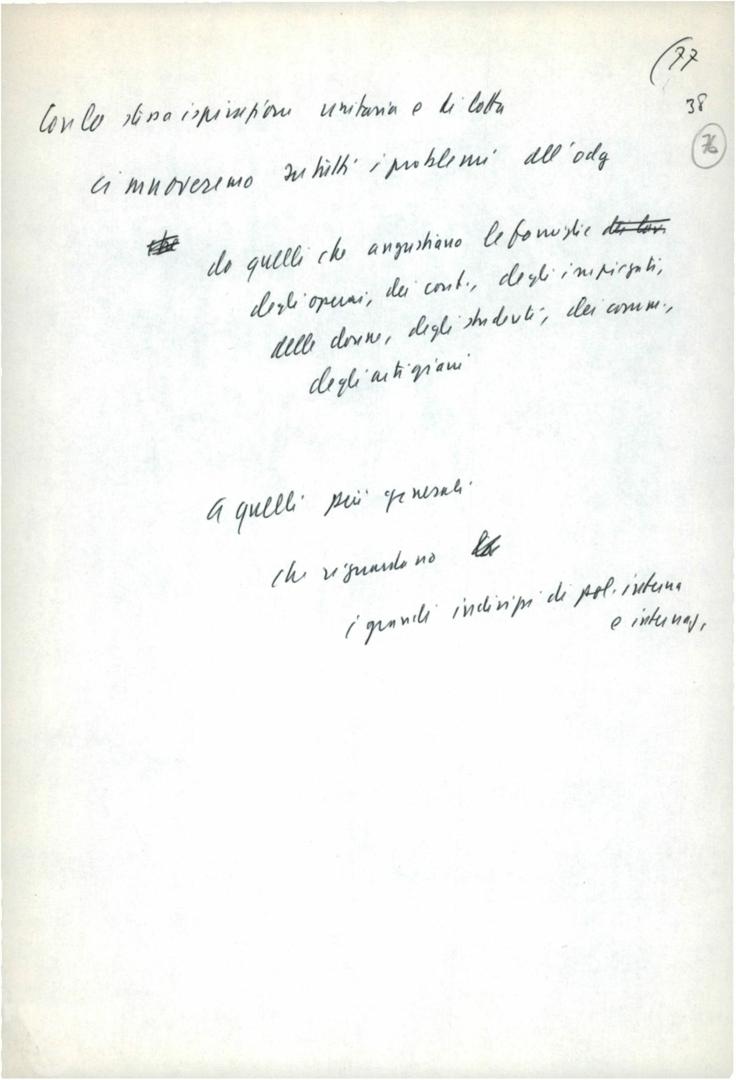 (77
38
76
Con la stessa ispirazione unitaria e di lotta
ci muoveremo su tutti i problemi all'odg
da quelli che angustiano le famiglie
degli operai, dei cont., degli impiegati,
delle donne, degli studenti, dei comm.,
degli artigiani
a quelli più generali
che riguardano
i grandi indirizzi di pol. interna
e internaz.